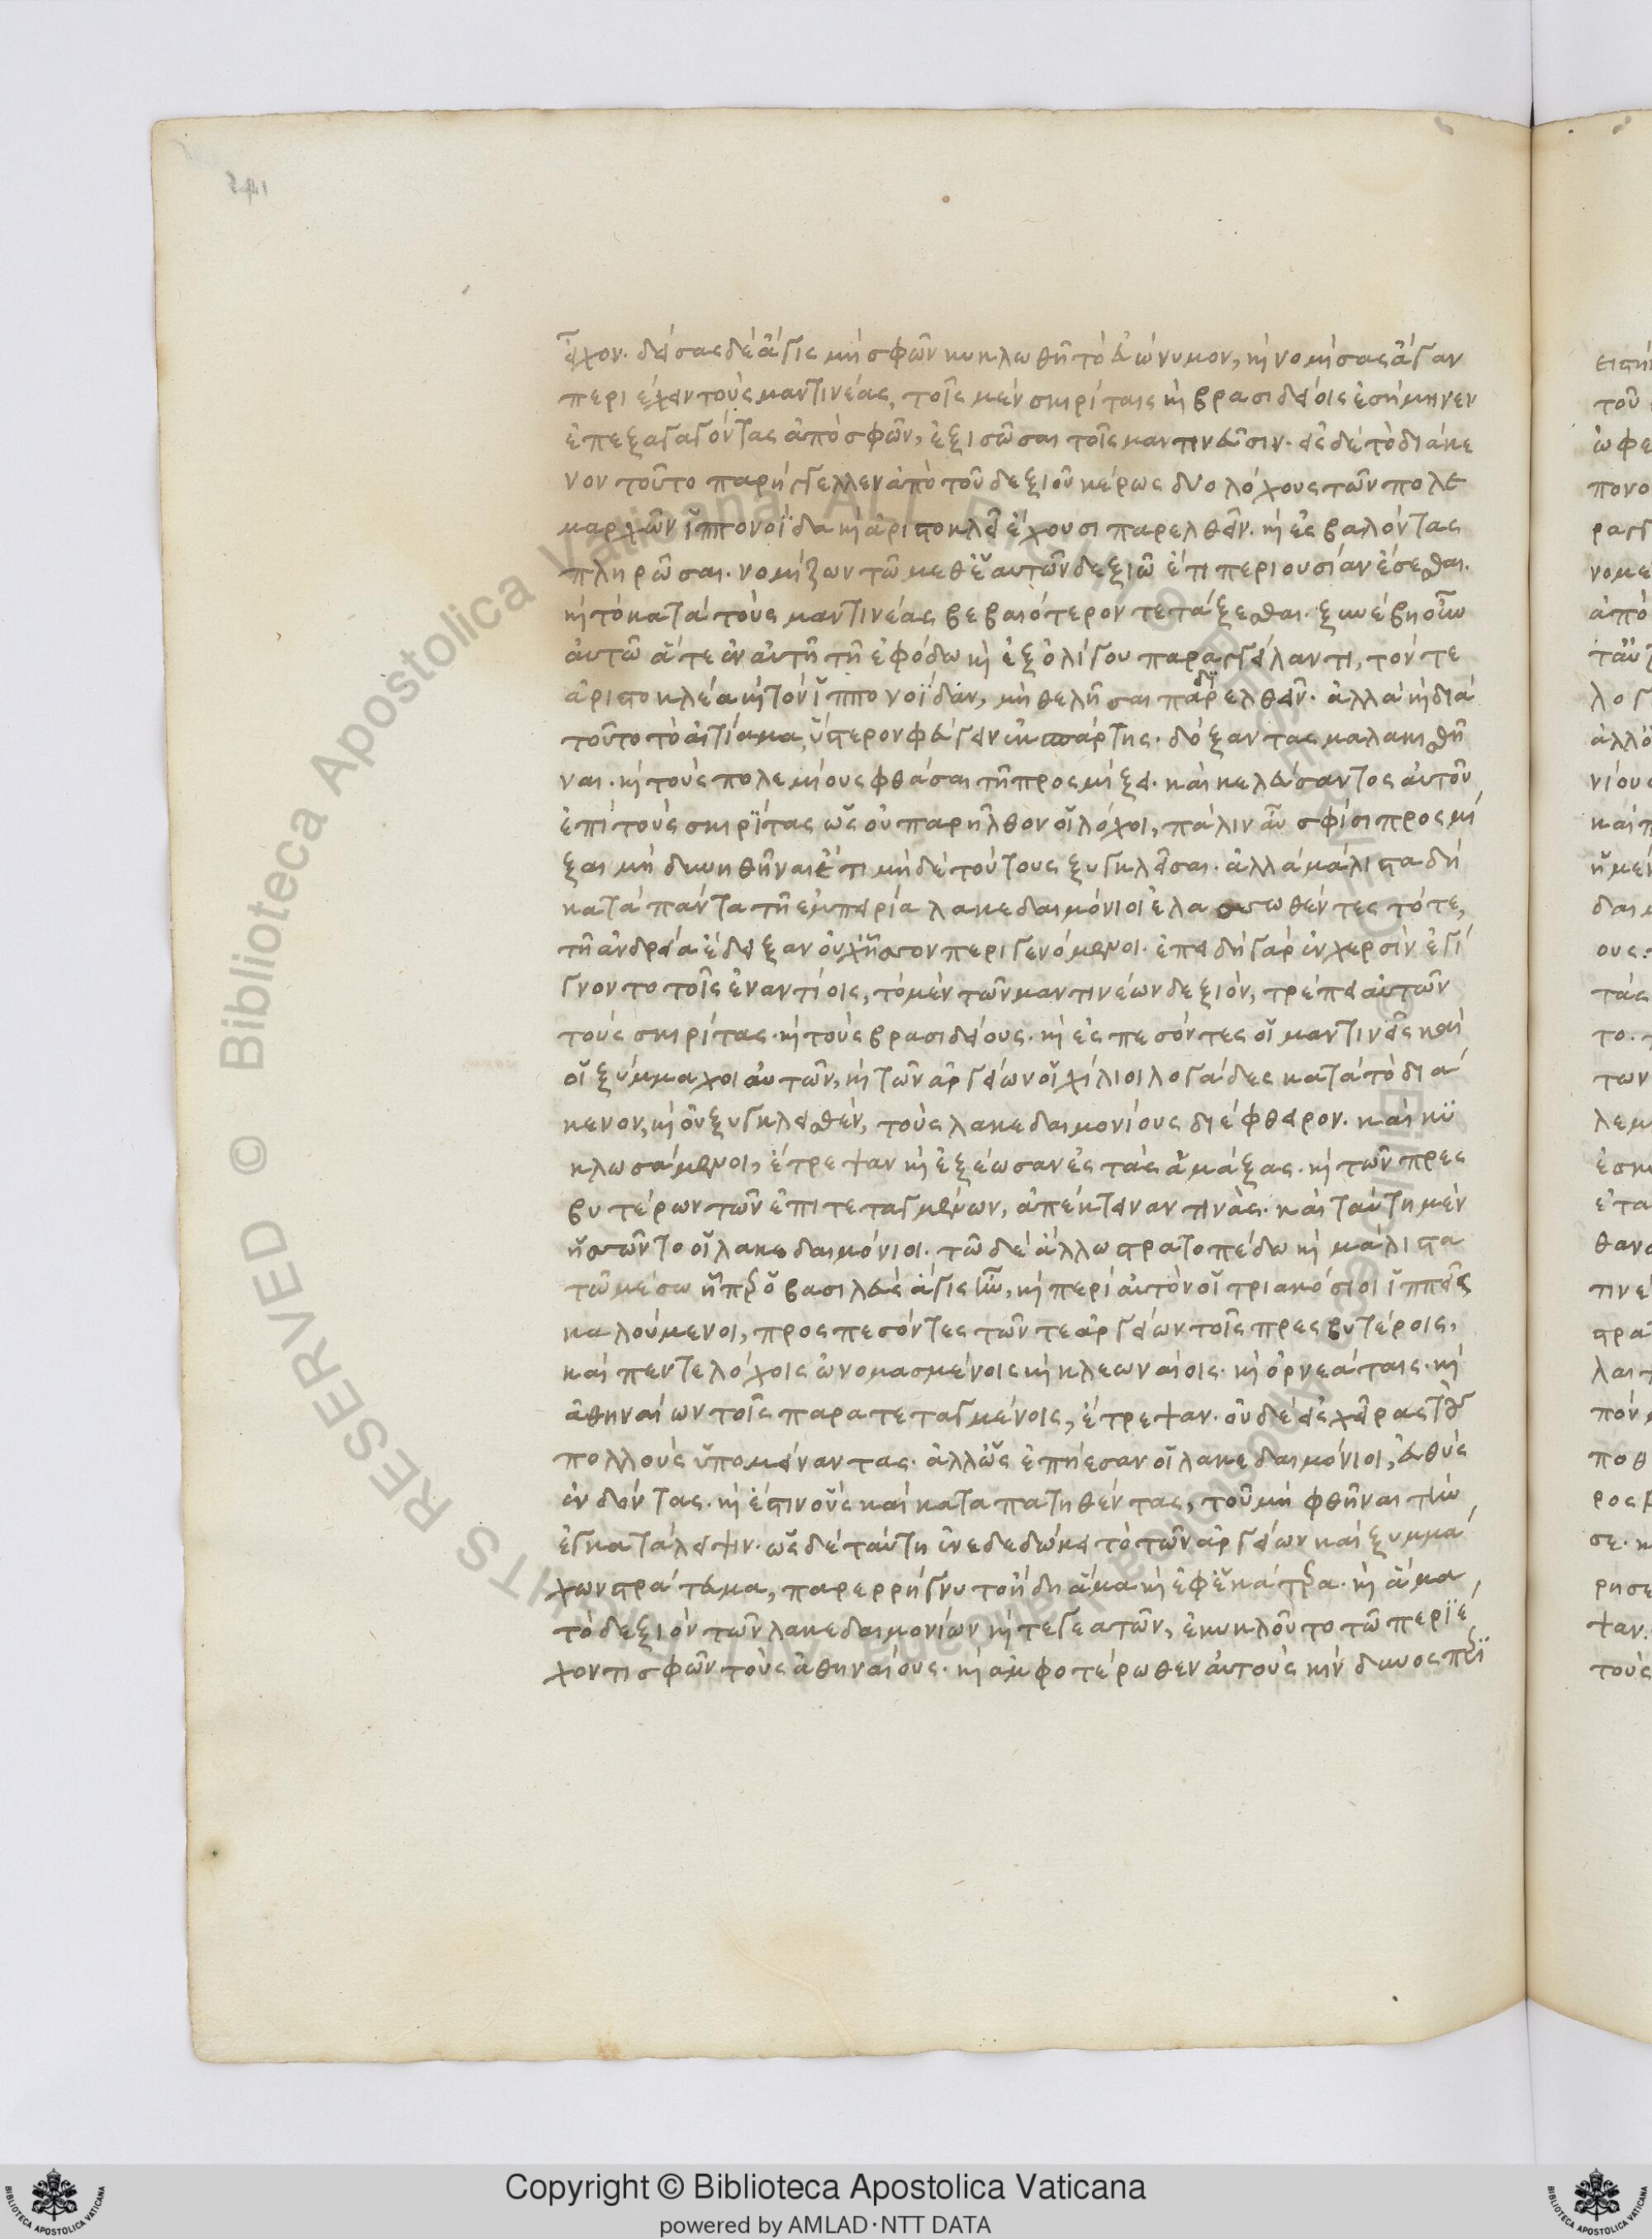 εἶχον. δείσας δὲ ἆγις μὴ σφῶν κυκλωθῆ τὸ εὐώνυμον, καὶ νομίσας ἄγαν
περιέχειν τοὺς μαντινέας, τοῖς μὲν σκιρίταις καὶ βρασιδείοις ἐσήμηνεν
ἐπεξαγαγόντας ἀπὸ σφῶν, ἐξισῶσαι τοῖς μαντινεῦσιν. ἐς δὲ τὸ διάκε
νον τοῦτο παρήγγελλεν ἀπὸ τοῦ δεξιοῦ κέρως δύο λόχους τῶν πολε
μαρχῶν ἱππονοΐδα καὶ ἀριστοκλεῖ ἔχουσι παρελθεῖν. καὶ ἐσβαλόντας
πληρῶσαι. νομίζων τῶ μεθ' ἑαυτῶν δεξιῶ ἔτι περιουσίαν ἔσεσθαι.
καὶ τὸ κατὰ τοὺς μαντινέας βεβαιότερον τετάξεσθαι. ξυνέβη οὖν
αὐτῶ ἅτε ἐν αὐτῆ τῆ ἐφόδω καὶ ἐξ ὀλίγου παραγγείλαντι, τόν τε
ἀριστοκλέα καὶ τὸν ἱππονοΐδαν, μὴ θελῆσαι παρελθεῖν. ἀλλὰ καὶ διὰ
τοῦτο τὸ αἰτίαμα, ὕστερον φεύγειν ἐκ σπάρτης. δόξαντας μαλακισθῆ
ναι. καὶ τοὺς πολεμίους φθάσαι τῆ προσμίξει. καὶ κελεύσαντος αὐτοῦ
ἐπὶ τοὺς σκιρίτας ὡς οὐ παρῆλθον οἱ λόχοι, πάλιν αὖ σφίσι προσμί
ξαι μὴ δυνηθῆναι ἔτι μὴ δὲ τούτους ξυγκλεῖσαι. ἀλλὰ μάλιστα δὴ
κατὰ πάντα τῆ ἐμπειρία λακεδαιμόνιοι ἐλασσωθέντες τότε,
τῆ ἀνδρεία ἔδειξαν οὐχ ἧσσον περιγενόμενοι. ἐπειδὴ γὰρ ἐν χερσὶν ἐγί
γνοντο τοῖς ἐναντίοις, τὸ μὲν τῶν μαντινέων δεξιὸν, τρέπει αὐτῶν
τοὺς σκιρίτας. καὶ τοὺς βρασιδείους. καὶ ἐσπεσόντες οἱ μαντινεῖς καὶ
οἱ ξύμμαχοι αὐτῶν, καὶ τῶν ἀργείων οἱ χίλιοι λογάδες κατὰ τὸ διά
κενον, καὶ οὐ ξυγκλεισθὲν, τοὺς λακεδαιμονίους διέφθειρον. καὶ κυ
κλωσάμενοι, ἔτρεψαν καὶ ἐξέωσαν ἐς τὰς ἁμάξας. καὶ τῶν πρεσ
βυτέρων τῶν ἐπιτεταγμένων, ἀπέκτειναν τινάς. καὶ ταύτη μὲν
ἡσσῶντο οἱ λακεδαιμόνιοι. τῶ δὲ ἄλλω στρατοπέδω καὶ μάλιστα
τῶ μέσω ἧπερ ὁ βασιλεὺς ἆγις ἦν, καὶ περὶ αὐτὸν οἱ τριακόσιοι ἱππεῖς
καλούμενοι, προσπεσόντες τῶν τε ἀργείων τοῖς πρεσβυτέροις,
καὶ πεντελόχοις ὠνομασμένοις καὶ κλεωναίοις. καὶ ὀρνεάταις. καὶ
ἀθηναίων τοῖς παρατεταγμένοις, ἔτρεψαν. οὐδὲ ἐς χεῖρας τοὺς
πολλοὺς ὑπομείναντας. ἀλλ' ὡς ἐπῄεσαν οἱ λακεδαιμόνιοι, εὐθὺς
ἐνδόντας. καὶ ἔστιν οὓς καὶ καταπατηθέντας, τοῦ μὴ φθῆναι τὴν
ἐγκατάληψιν. ὡς δὲ ταύτη ἐνεδεδώκει τὸ τῶν ἀργείων καὶ ξυμμά
χων στράτευμα, παρερρήγνυντο ἤδη ἅμα καὶ ἐφ' ἑκάτερα. καὶ ἅμα
τὸ δεξιὸν τῶν λακεδαιμονίων καὶ τεγεατῶν, ἐκυκλοῦτο τῶ περιέ
χοντι σφῶν τοὺς ἀθηναίους. καὶ ἀμφοτέρωθεν αὐτοὺς κίνδυνος περι
Copyright © Biblioteca Apostolica Vaticana
powered by AMLAD·NTT DATA